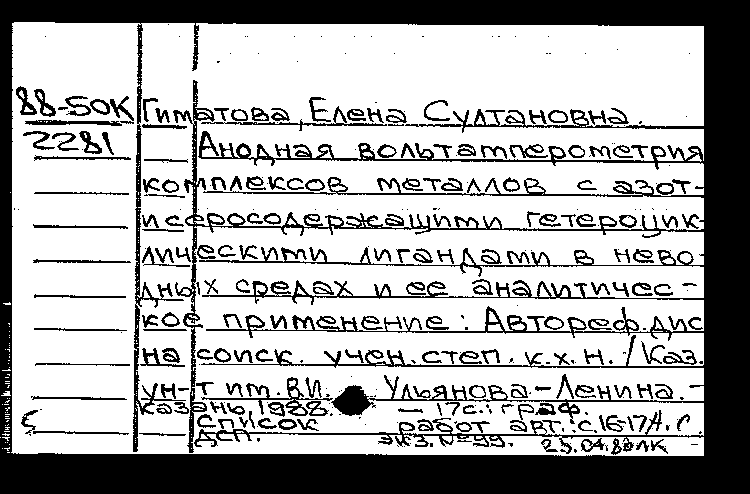 88-50К Гиматова, Елена Султановна.
2281 Анодная вольтамперометрия
комплексов металлов с азот-
и серосодержащими гетероцик-
лическими лигандами в нево-
дных средах и ее аналитичес-
кое применение: Автореф.дис
на соиск. учен.степ. к.х.н. / Каз.
ун-т им. В.И. Ульянова-Ленина.-
Казань, 1988. — 17с.: граф.
Список работ авт.: с.16-17
ДСП. Экз.№99. 25.04.88